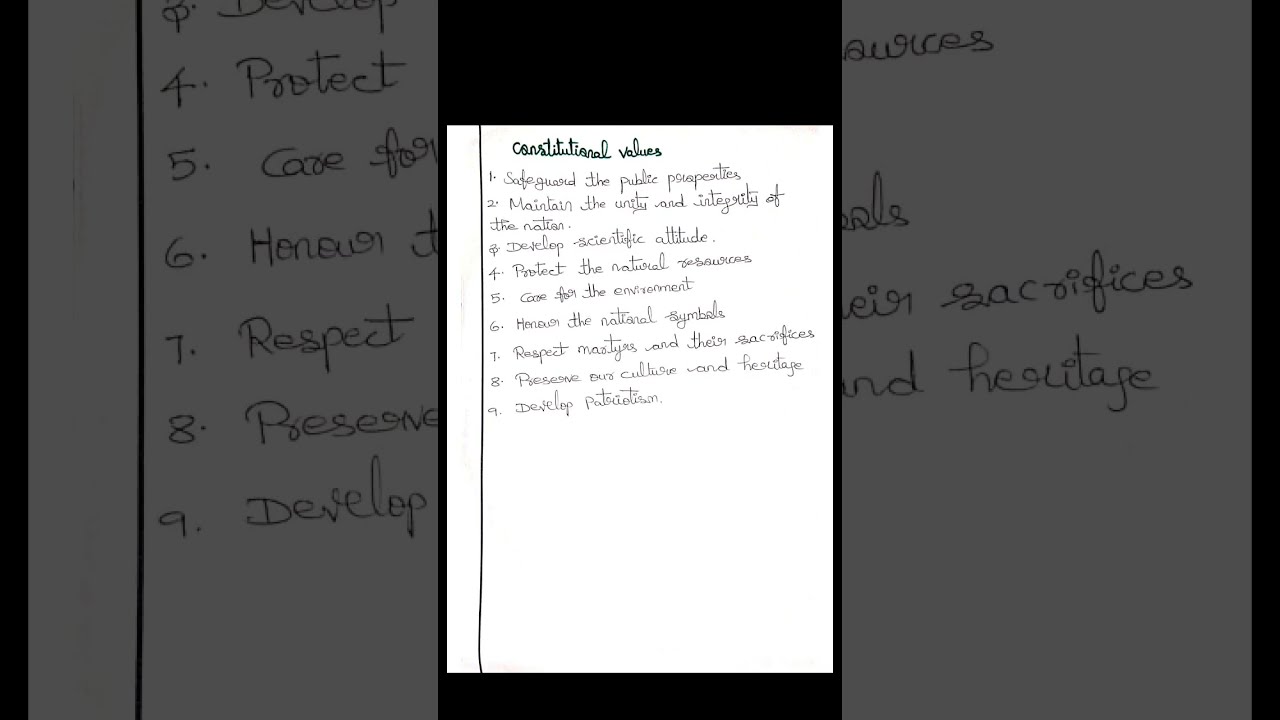 Constitutional values
1. Safeguard the public properties
2. Maintain the unity and integrity of
the nation.
3. Develop scientific attitude.
4. Protect the natural resources
5. Care for the environment
6. Honour the national symbols
7. Respect martyrs and their sacrifices
8. Preserve our culture and heritage
9. Develop patriotism.